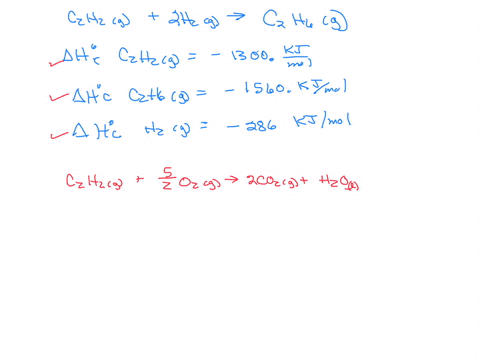 C₂H₂(g) + 2H₂(g) → C₂H₆(g)
✓ΔH°c C₂H₂(g) = - 1300. KJ/mol
✓ΔH°c C₂H₆(g) = - 1560. KJ/mol
✓ΔH°c H₂(g) = - 286 KJ/mol
C₂H₂(g) + 5/2 O₂(g) → 2CO₂(g) + H₂O(l)